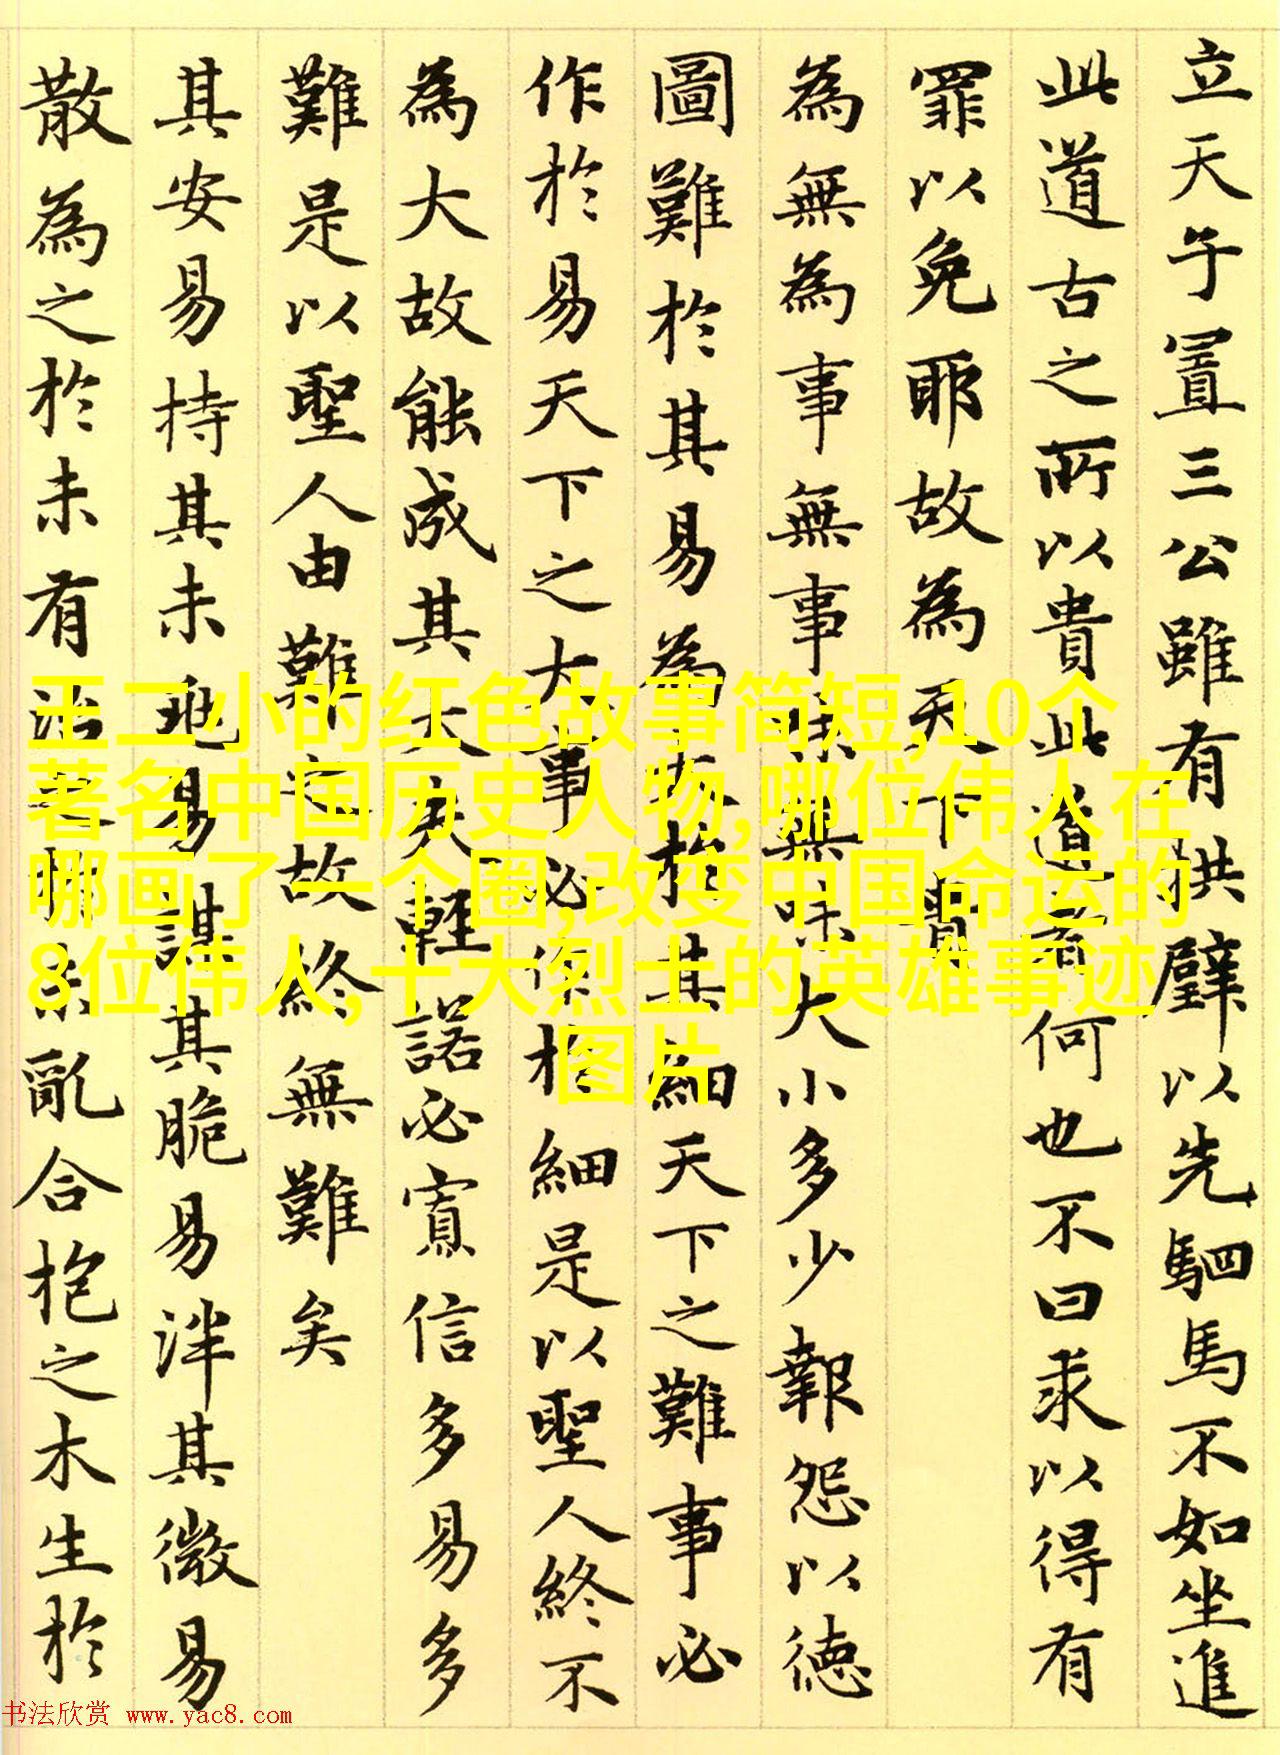 立天子置三公雖有拱璧以先駟馬不如坐進
此道古之所以貴此道者何也不曰求以得有
罪以免耶故為天下貴
為無為事無事味無味大小多少報怨以德
圖難於其易為大於其細天下之難事必
作於易天下之大事必作於細是以聖人終不
為大故能成其大夫輕諾必寡信多易多
難是以聖人由難之故終無難矣
其安易持其未兆易謀其脆易泮其微易
散為之於未有治之於未亂合抱之木生於
王二小的红色故事简短,10个
著名中国历史人物,哪位伟人在
哪画了一个圈,改变中国命运的
8位伟人,十大烈士的英雄事迹
图片
书法欣赏 www.yac8.com